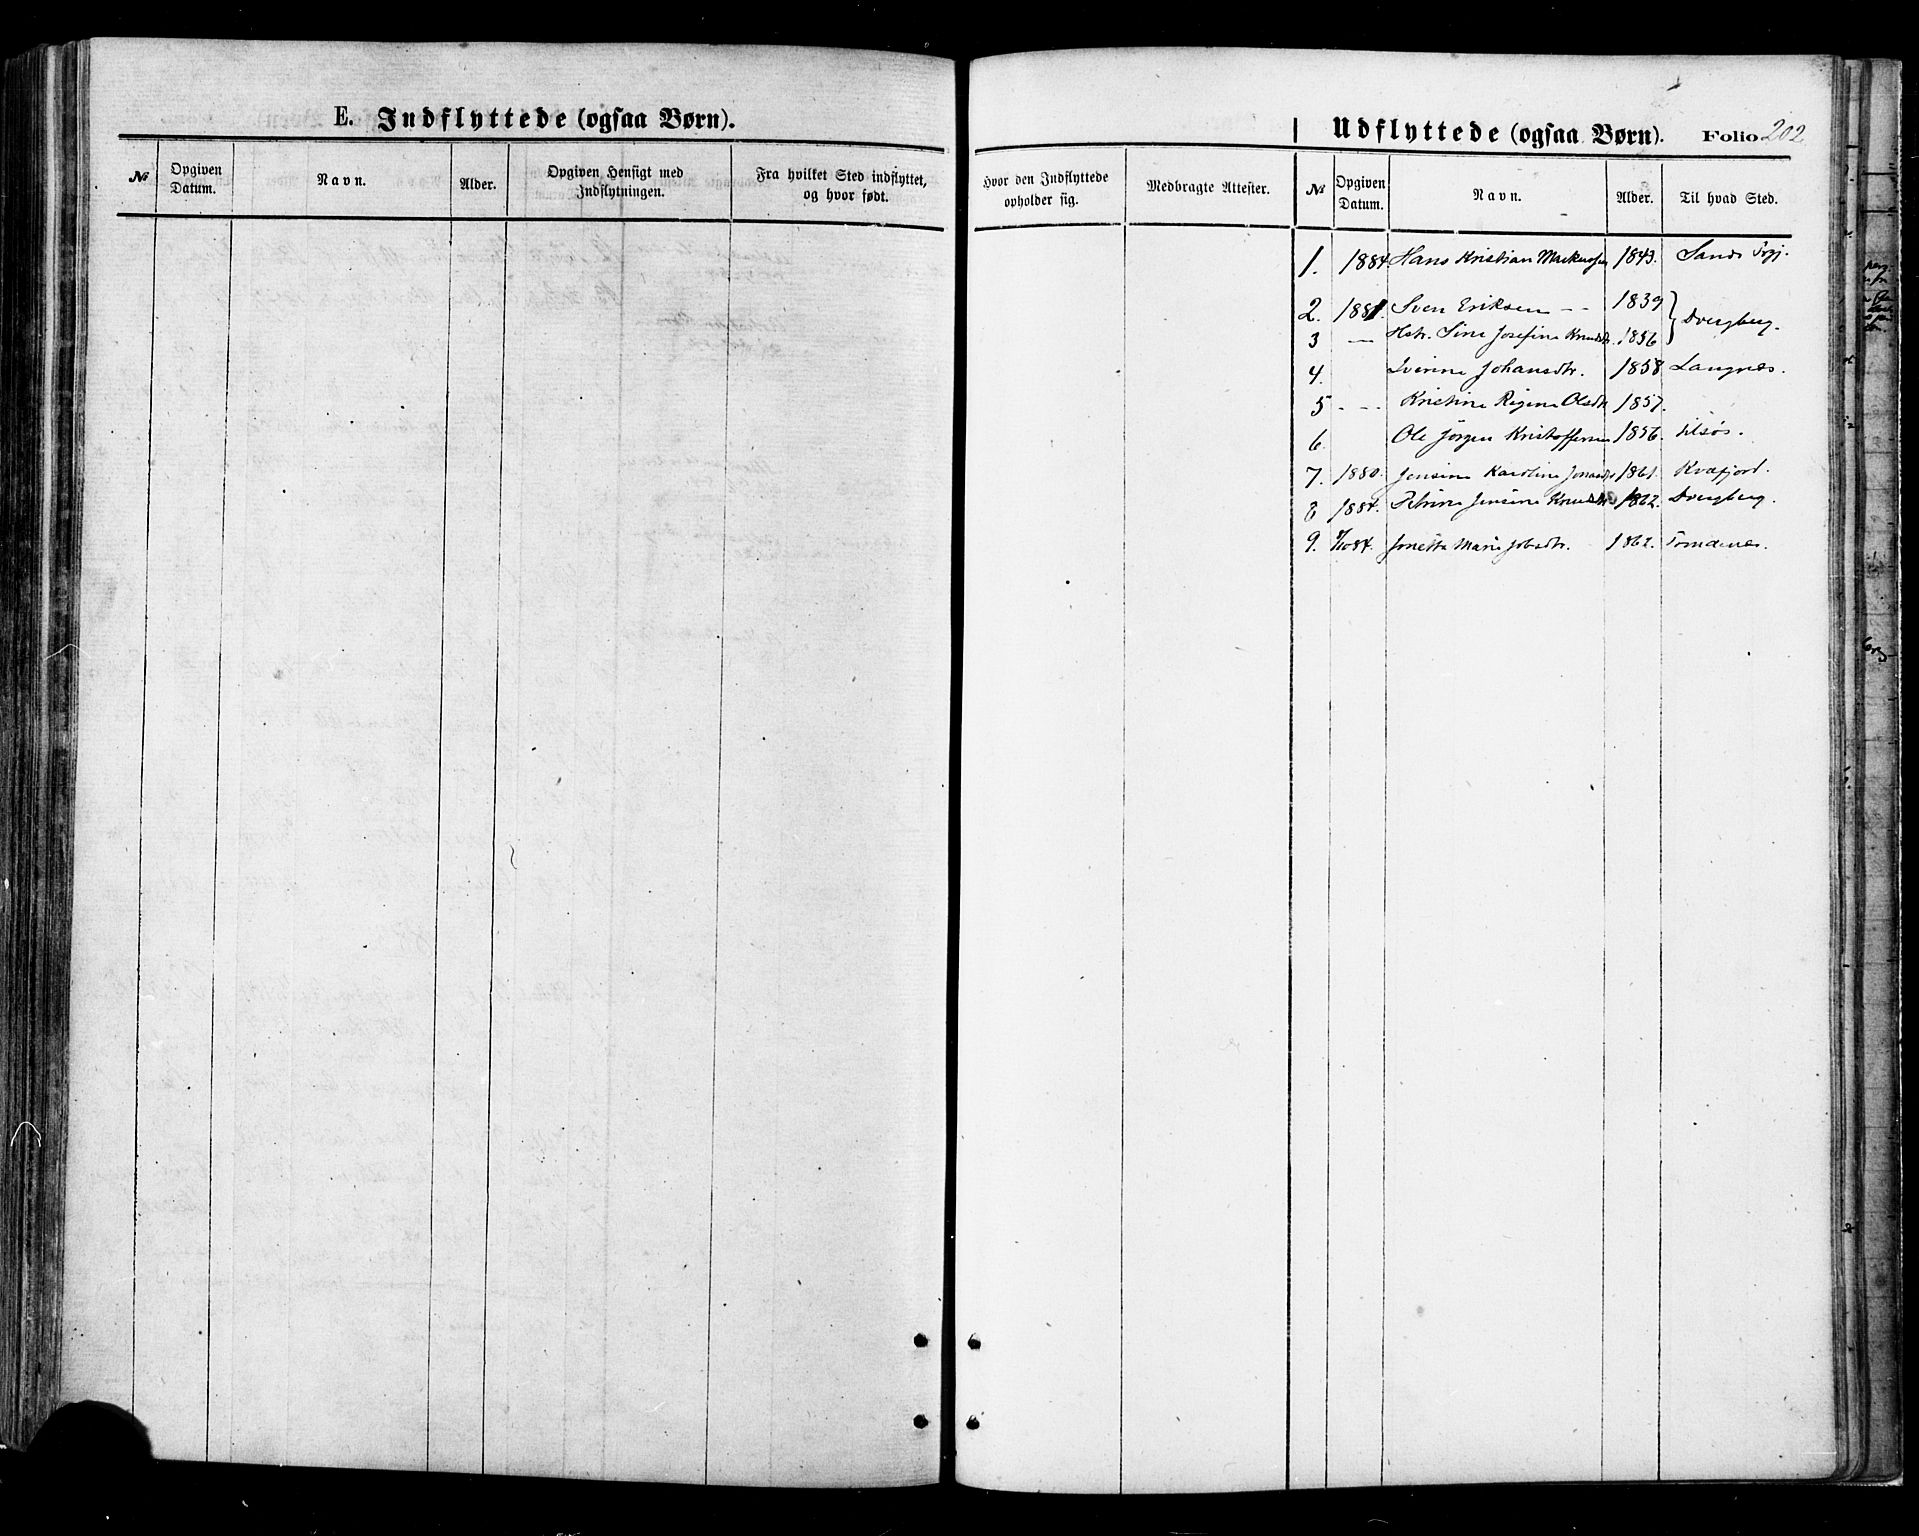 E. Indflyttede (ogsaa Børn).
№ Opgiven Datum. Navn. Alder. Opgiven Hensigt med Indflytningen. Fra hvilket Sted indflyttet, og hvor født.
Udflyttede (ogsaa Børn). Folio 202
Hvor den Indflyttede opholder sig. Medbragte Attester. № Opgiven Datum. Navn. Alder. Til hvad Sted.
1. 1884. Hans Kristian Markussen 1843. Sands
2. 1881. Sven Eriksen - - 1839 } Dvergberg.
3 — Hstr. Sine Josefine Knudsdtr. 1856
4. Iverine Johansdtr. 1858 Langnes.
5 - - - Kristine Regine Olsdtr 1857.
6 Ole Jørgen Kristoffersen 1856. tilsøs.
7. 1880. Jensine Karoline Jonasdtr 1861. Kvæfjord.
8 1884. Petrine Jensine Knudsdtr 1862. Dvergberg.
9. 84. Jonetta Marie Jobsdtr. 1862. Trondenes.